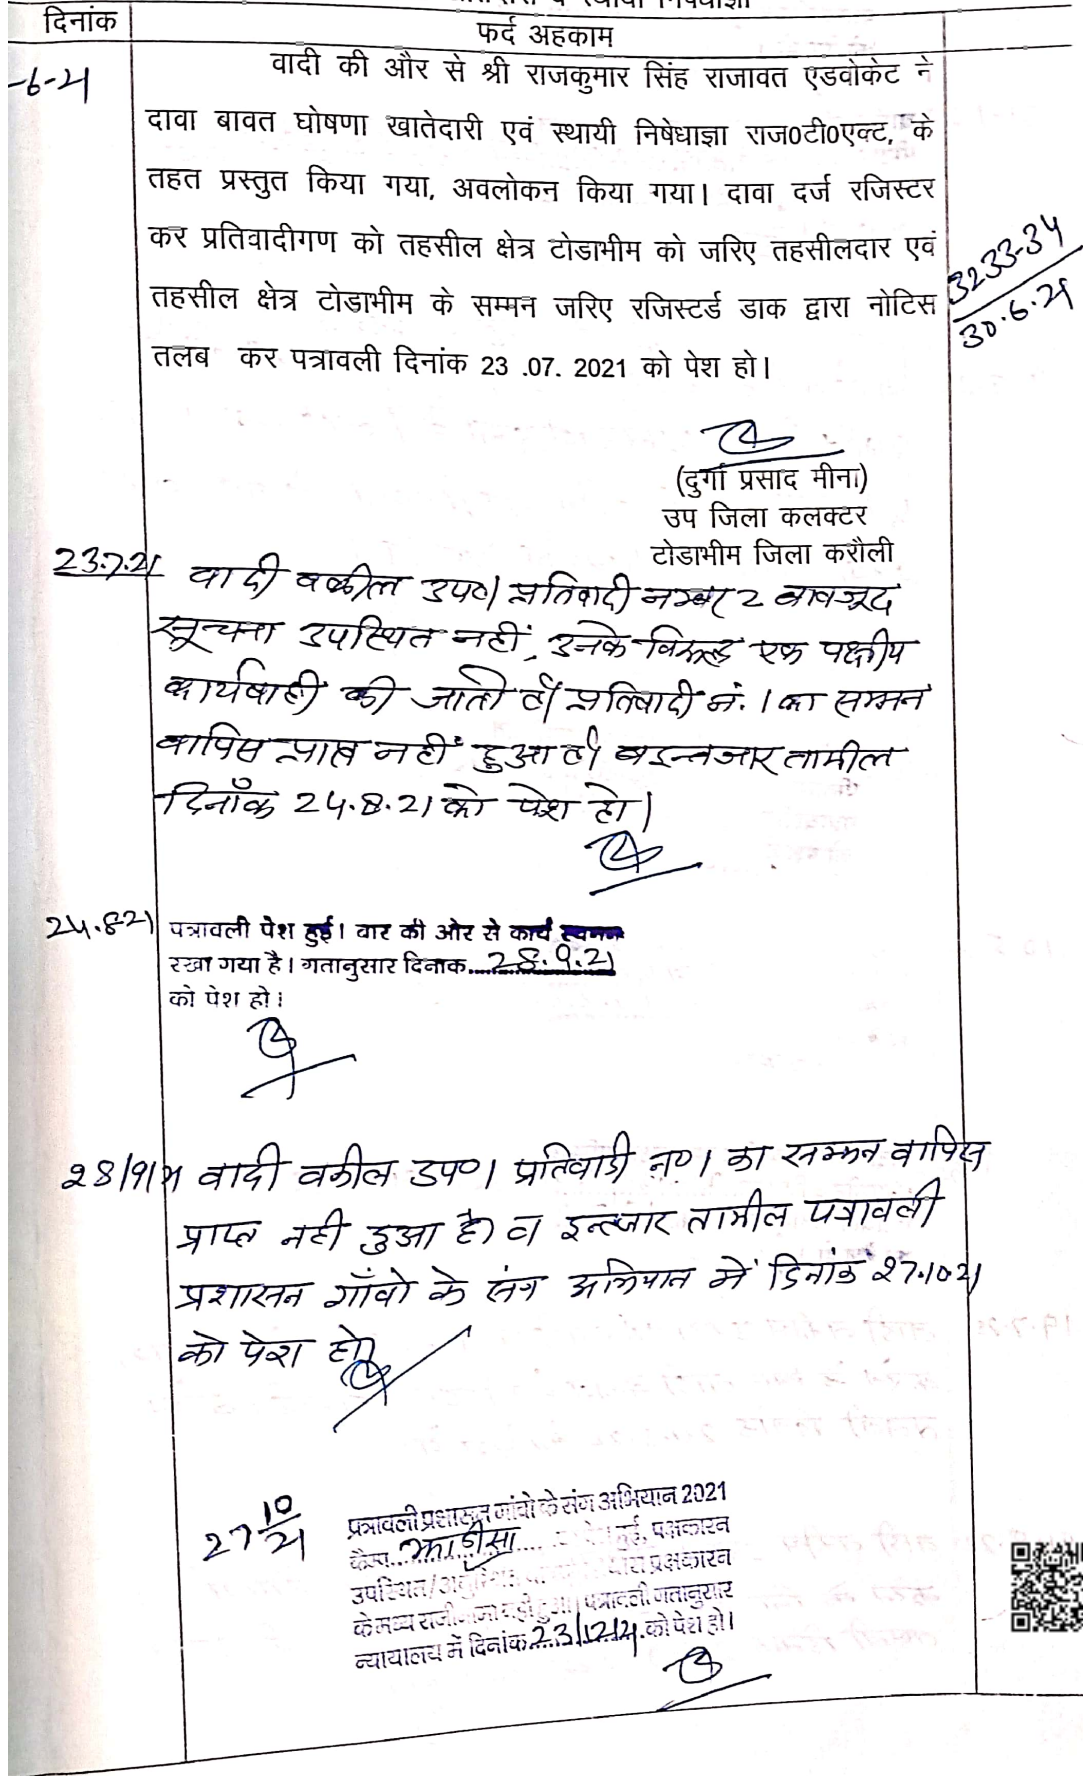 दिनांक
फर्द अहकाम
-6-21
वादी की और से श्री राजकुमार सिंह राजावत एडवोकेट ने
दावा बावत घोषणा खातेदारी एवं स्थायी निषेधाज्ञा राज0टी0एक्ट, के
तहत प्रस्तुत किया गया, अवलोकन किया गया। दावा दर्ज रजिस्टर
कर प्रतिवादीगण को तहसील क्षेत्र टोडाभीम को जरिए तहसीलदार एवं
तहसील क्षेत्र टोडाभीम के सम्मन जरिए रजिस्टर्ड डाक द्वारा नोटिस
तलब कर पत्रावली दिनांक 23 .07. 2021 को पेश हो।
3233-34
30.6.21
(दुर्गा प्रसाद मीना)
उप जिला कलक्टर
टोडाभीम जिला करौली
23.7.21 वादी वकील उप०। प्रतिवादी नम्बर 2 बावजूद
सूचना उपस्थित नहीं, उनके विरूद्ध एक पक्षीय
कार्यवाही की जाती है। प्रतिवादी नं. 1 का सम्मन
वापिस प्राप्त नहीं हुआ है। ब इन्तजार तामील
दिनाँक 24.8.21 को पेश हो।
24.8.21 पत्रावली पेश हुई। वार की ओर से कार्य स्थगन
रखा गया है। गतानुसार दिनाक....28.9.21
को पेश हो।
28/9/21 वादी वकील उप०। प्रतिवादी न० 1 का सम्मन वापिस
प्राप्त नही हुआ है। व इन्तजार तामील पत्रावली
प्रशासन गाँवो के संग अभियान में दिनांक 27.10.21
को पेश हो।
27 10/21
पत्रावली प्रशासन गांवो के संग अभियान 2021
कैम्प.......... हुई. पक्षकारन
उपस्थित/ पक्षकारन
के मध्य राजीनामा नही हुआ। पत्रावली गतानुसार
न्यायालय में दिनांक 23/12/21 को पेश हो।